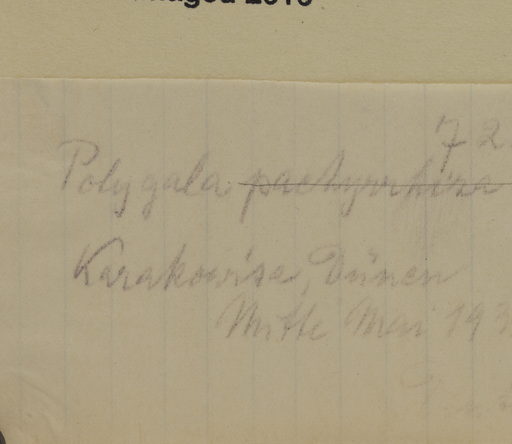 Imaged 2016
72
Polygala pachyrrhiza
Karakowisa, Dünen
Mitte Mai 193